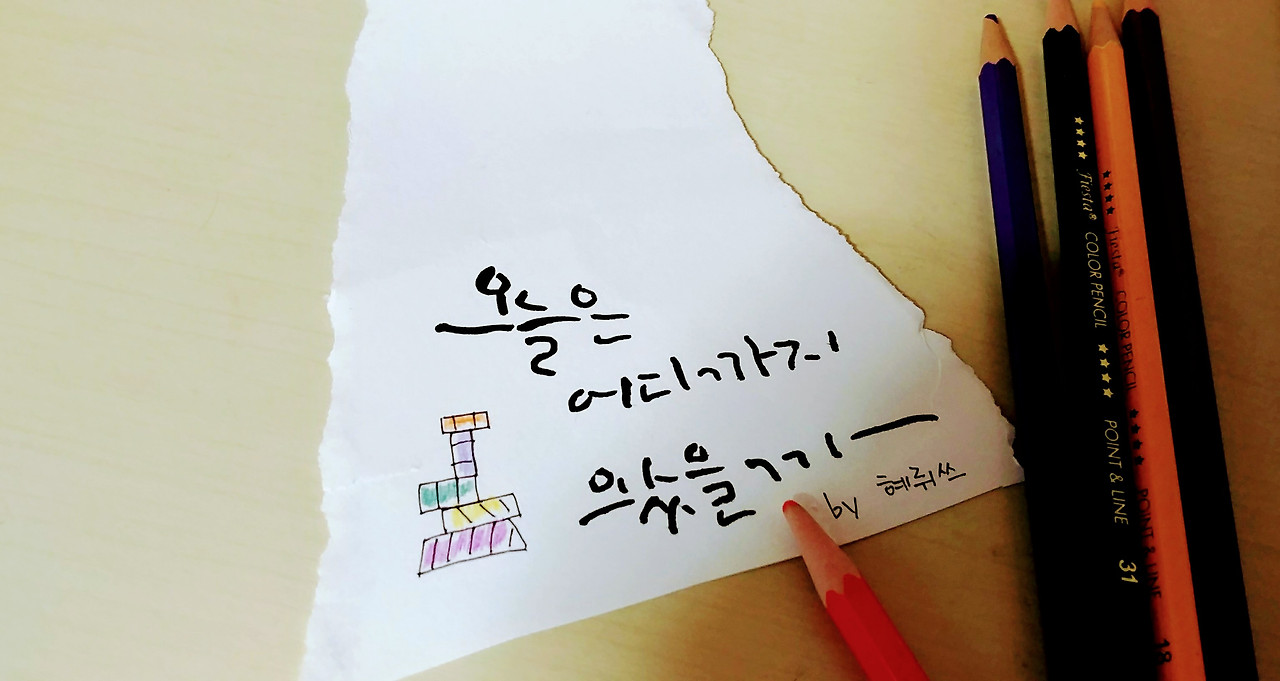 오늘은
어디까지
왔을까
by 혜뤼쓰
Fiesta® COLOR PENCIL POINT & LINE 31
Fiesta® COLOR PENCIL POINT & LINE 18